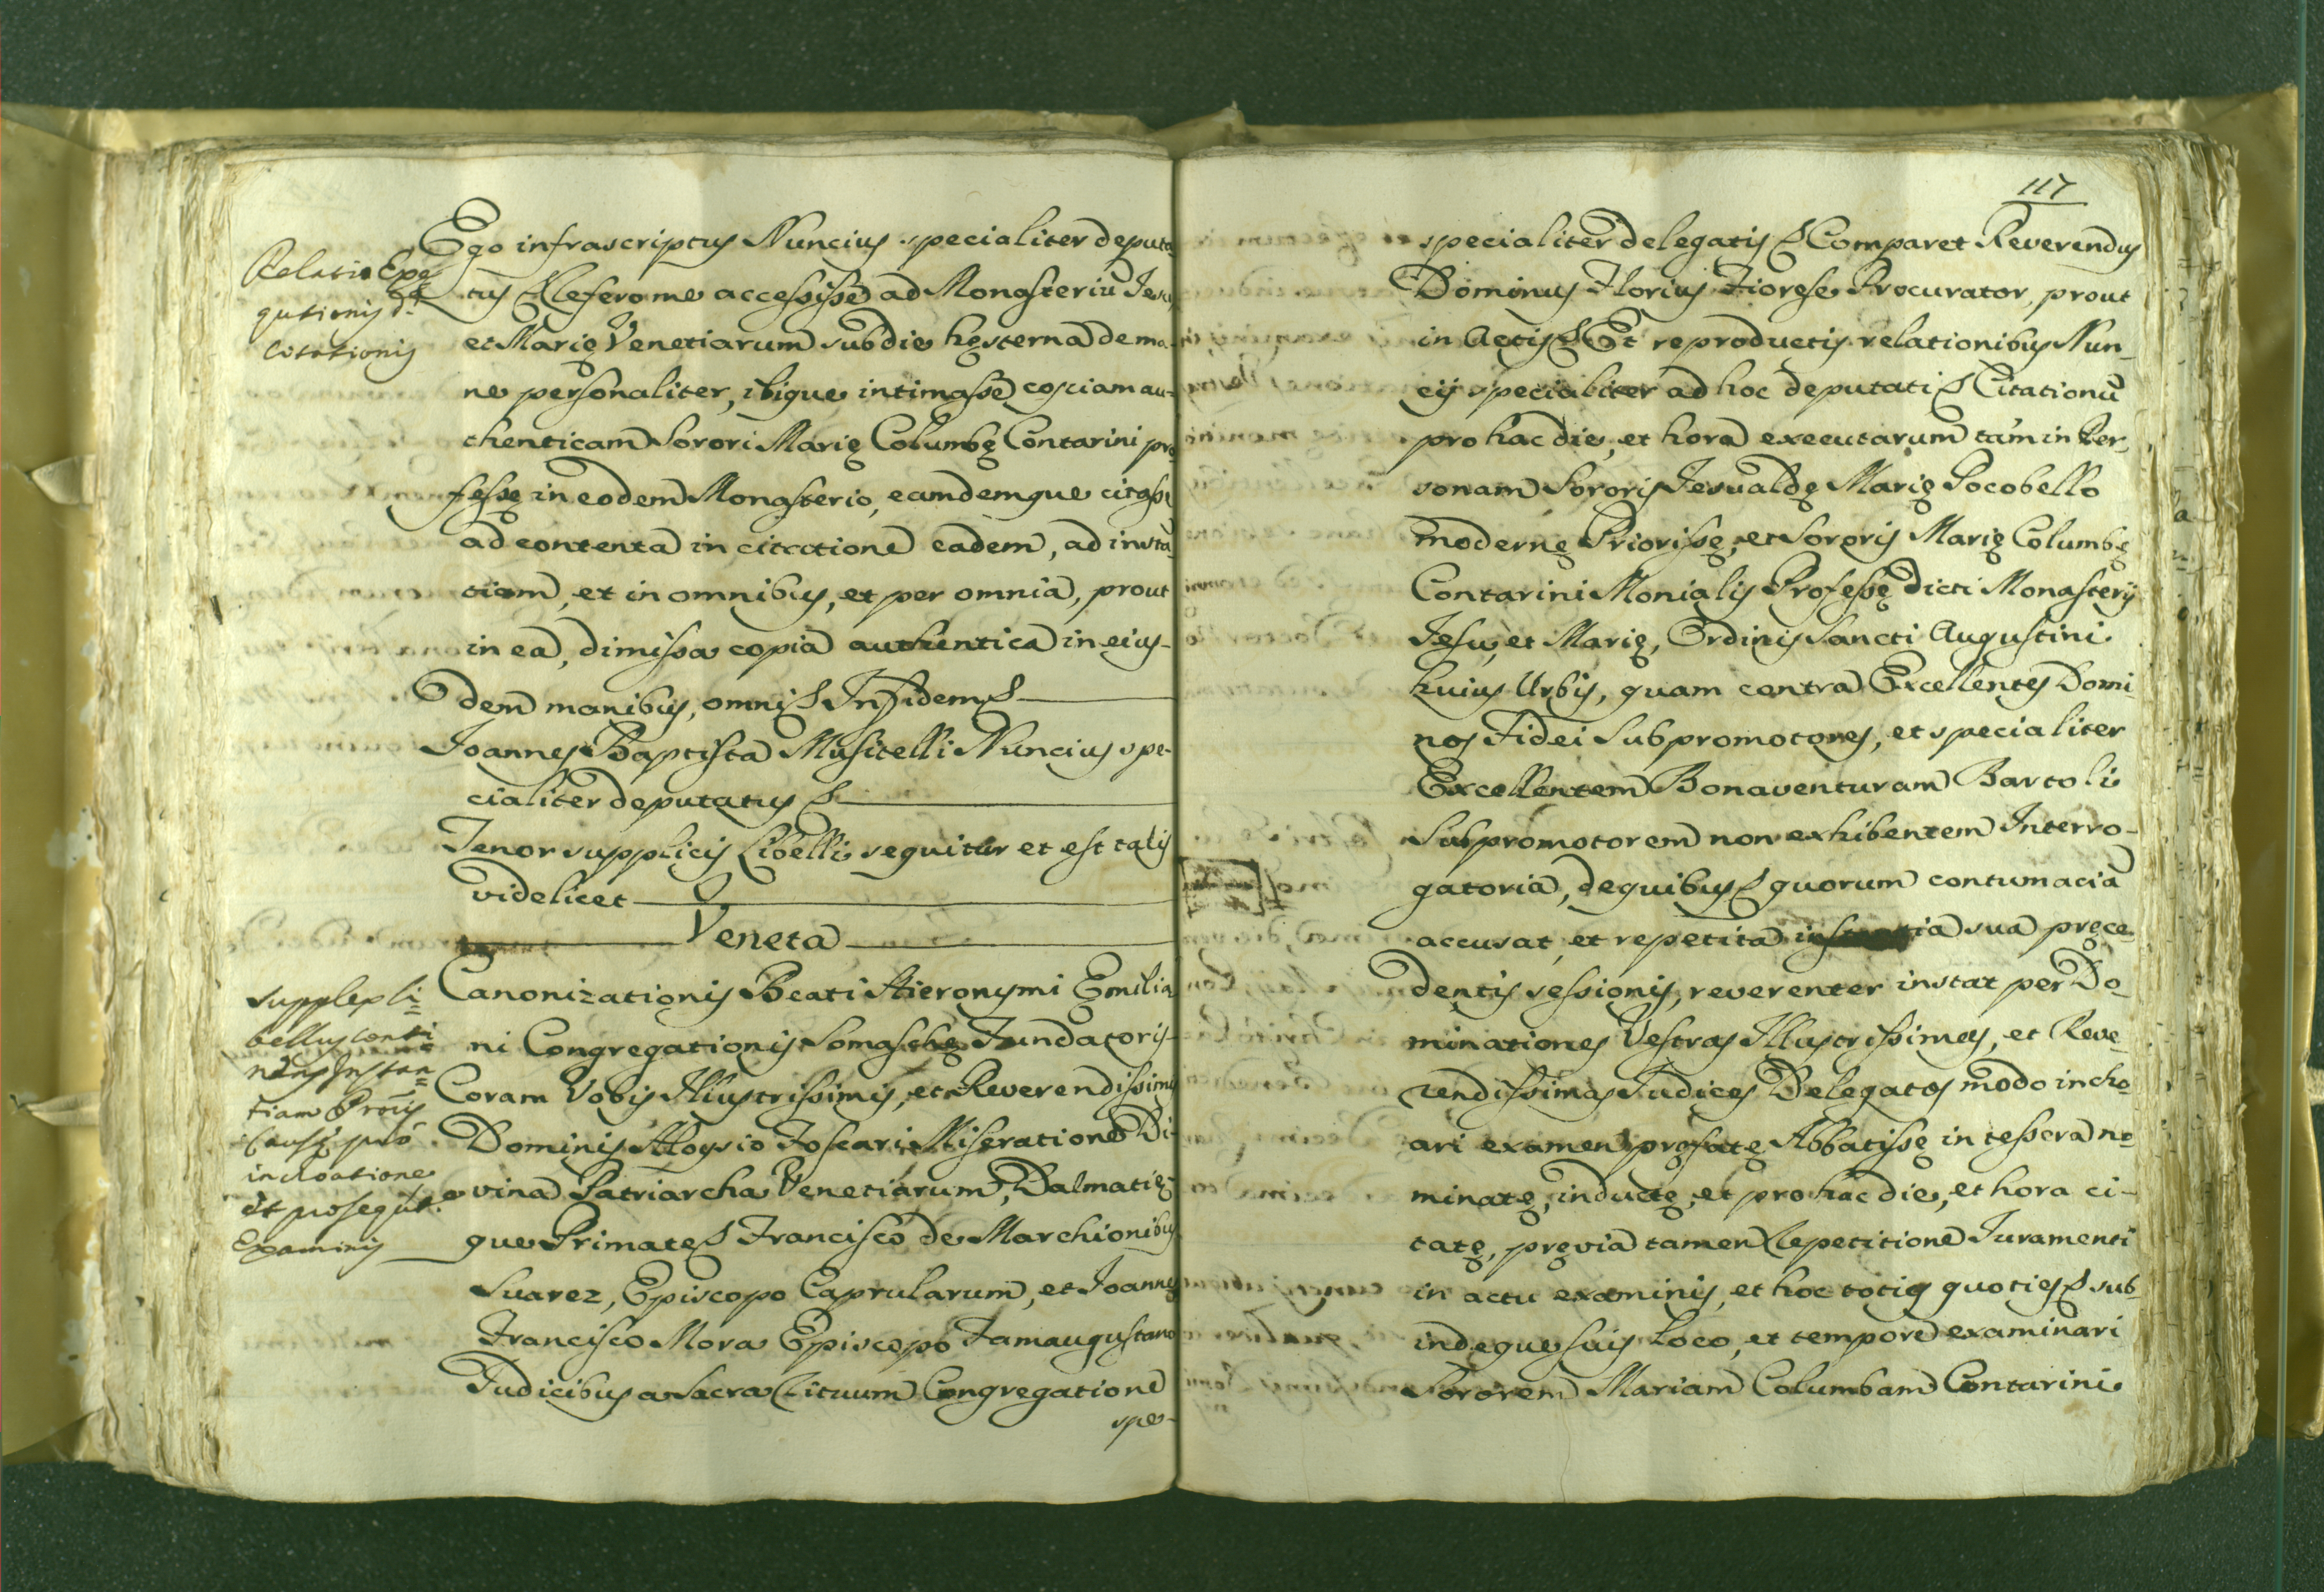 Relatio Exe
qutionis d.ę
Citationis
Ego infrascriptus Nuncius specialiter deputa
tus & Refero me accessisse ad Monasteriũ Jesu,
et Marię Venetiarum sub die hesterna de ma
ne personaliter, ibique intimasse copiam au-
thenticam Sorori Marię Columbę Contarini pro
fessę in eodem Monasterio, eamdemque citasse
ad contenta in citatione eadem, ad instã
tiam, et in omnibus, et per omnia, prout
in ea, dimissa copia authentica in eius-
dem manibus, omni & In fidem &
Joannes Baptista Musitelli Nuncius spe-
cialiter deputatus &
Tenor supplicis Libelli sequitur et est talis
videlicet
Veneta
supplex li=
bellus conti
nens Instan=
tiam Prõris
Causę prõ
inchoatione
et proseqũt.e
Examinis
Canonizationis Beati Hieronymi Emilia
ni Congregationis Somaschę Fundatoris
Coram Vobis Illustrissimis, et Reverendissimis
Dominis Aloysio Foscari Miseratione Di-
vina Patriarcha Venetiarum, Dalmatię-
que Primate & Francisco de Marchionibus
Suarez, Episcopo Caprularum, et Joanne
Francisco Mora Episcopo Famaugustano
Judicibus a Sacra Rituum Congregatione
spe-
117
specialiter delegatis & Comparet Reverendus
Dominus Florius Fiorese Procurator, prout
in Actis & Et reproductis relationibus Nun-
cij specialiter ad hoc deputati & Citationũ
pro hac die, et hora executarum tam in Per-
sonam Sororis Jesualdę Marię Pocobello
modernę Priorissę, et Sororis Marię Columbę
Contarini Monialis Professę dicti Monasterij
Jesu, et Marię, Ordinis Sancti Augustini
huius Urbis, quam contra Excellentes Domi
nos Fidei Subpromotores, et specialiter
Excellentem Bonaventuram Bartoli
Subpromotorem non exhibentem Interro-
gatoria, de quibus & quorum contumacia
accusat, et repetita instantia sua pręce-
dentis sessionis, reverenter instat per Do-
minationes Vestras Illustrissimas, et Reve-
rendissimas Judices Delegatos modo incho
ari examen pręfatę Abbatissę in tessera no-
minatę, inductę, et pro hac die, et hora ci-
tatę, pręvia tamen Repetitione Juramenti
in actu examinis, et hoc toties quoties & sub-
indeque suis Loco, et tempore examinari
Sororem Mariam Columbam Contarini